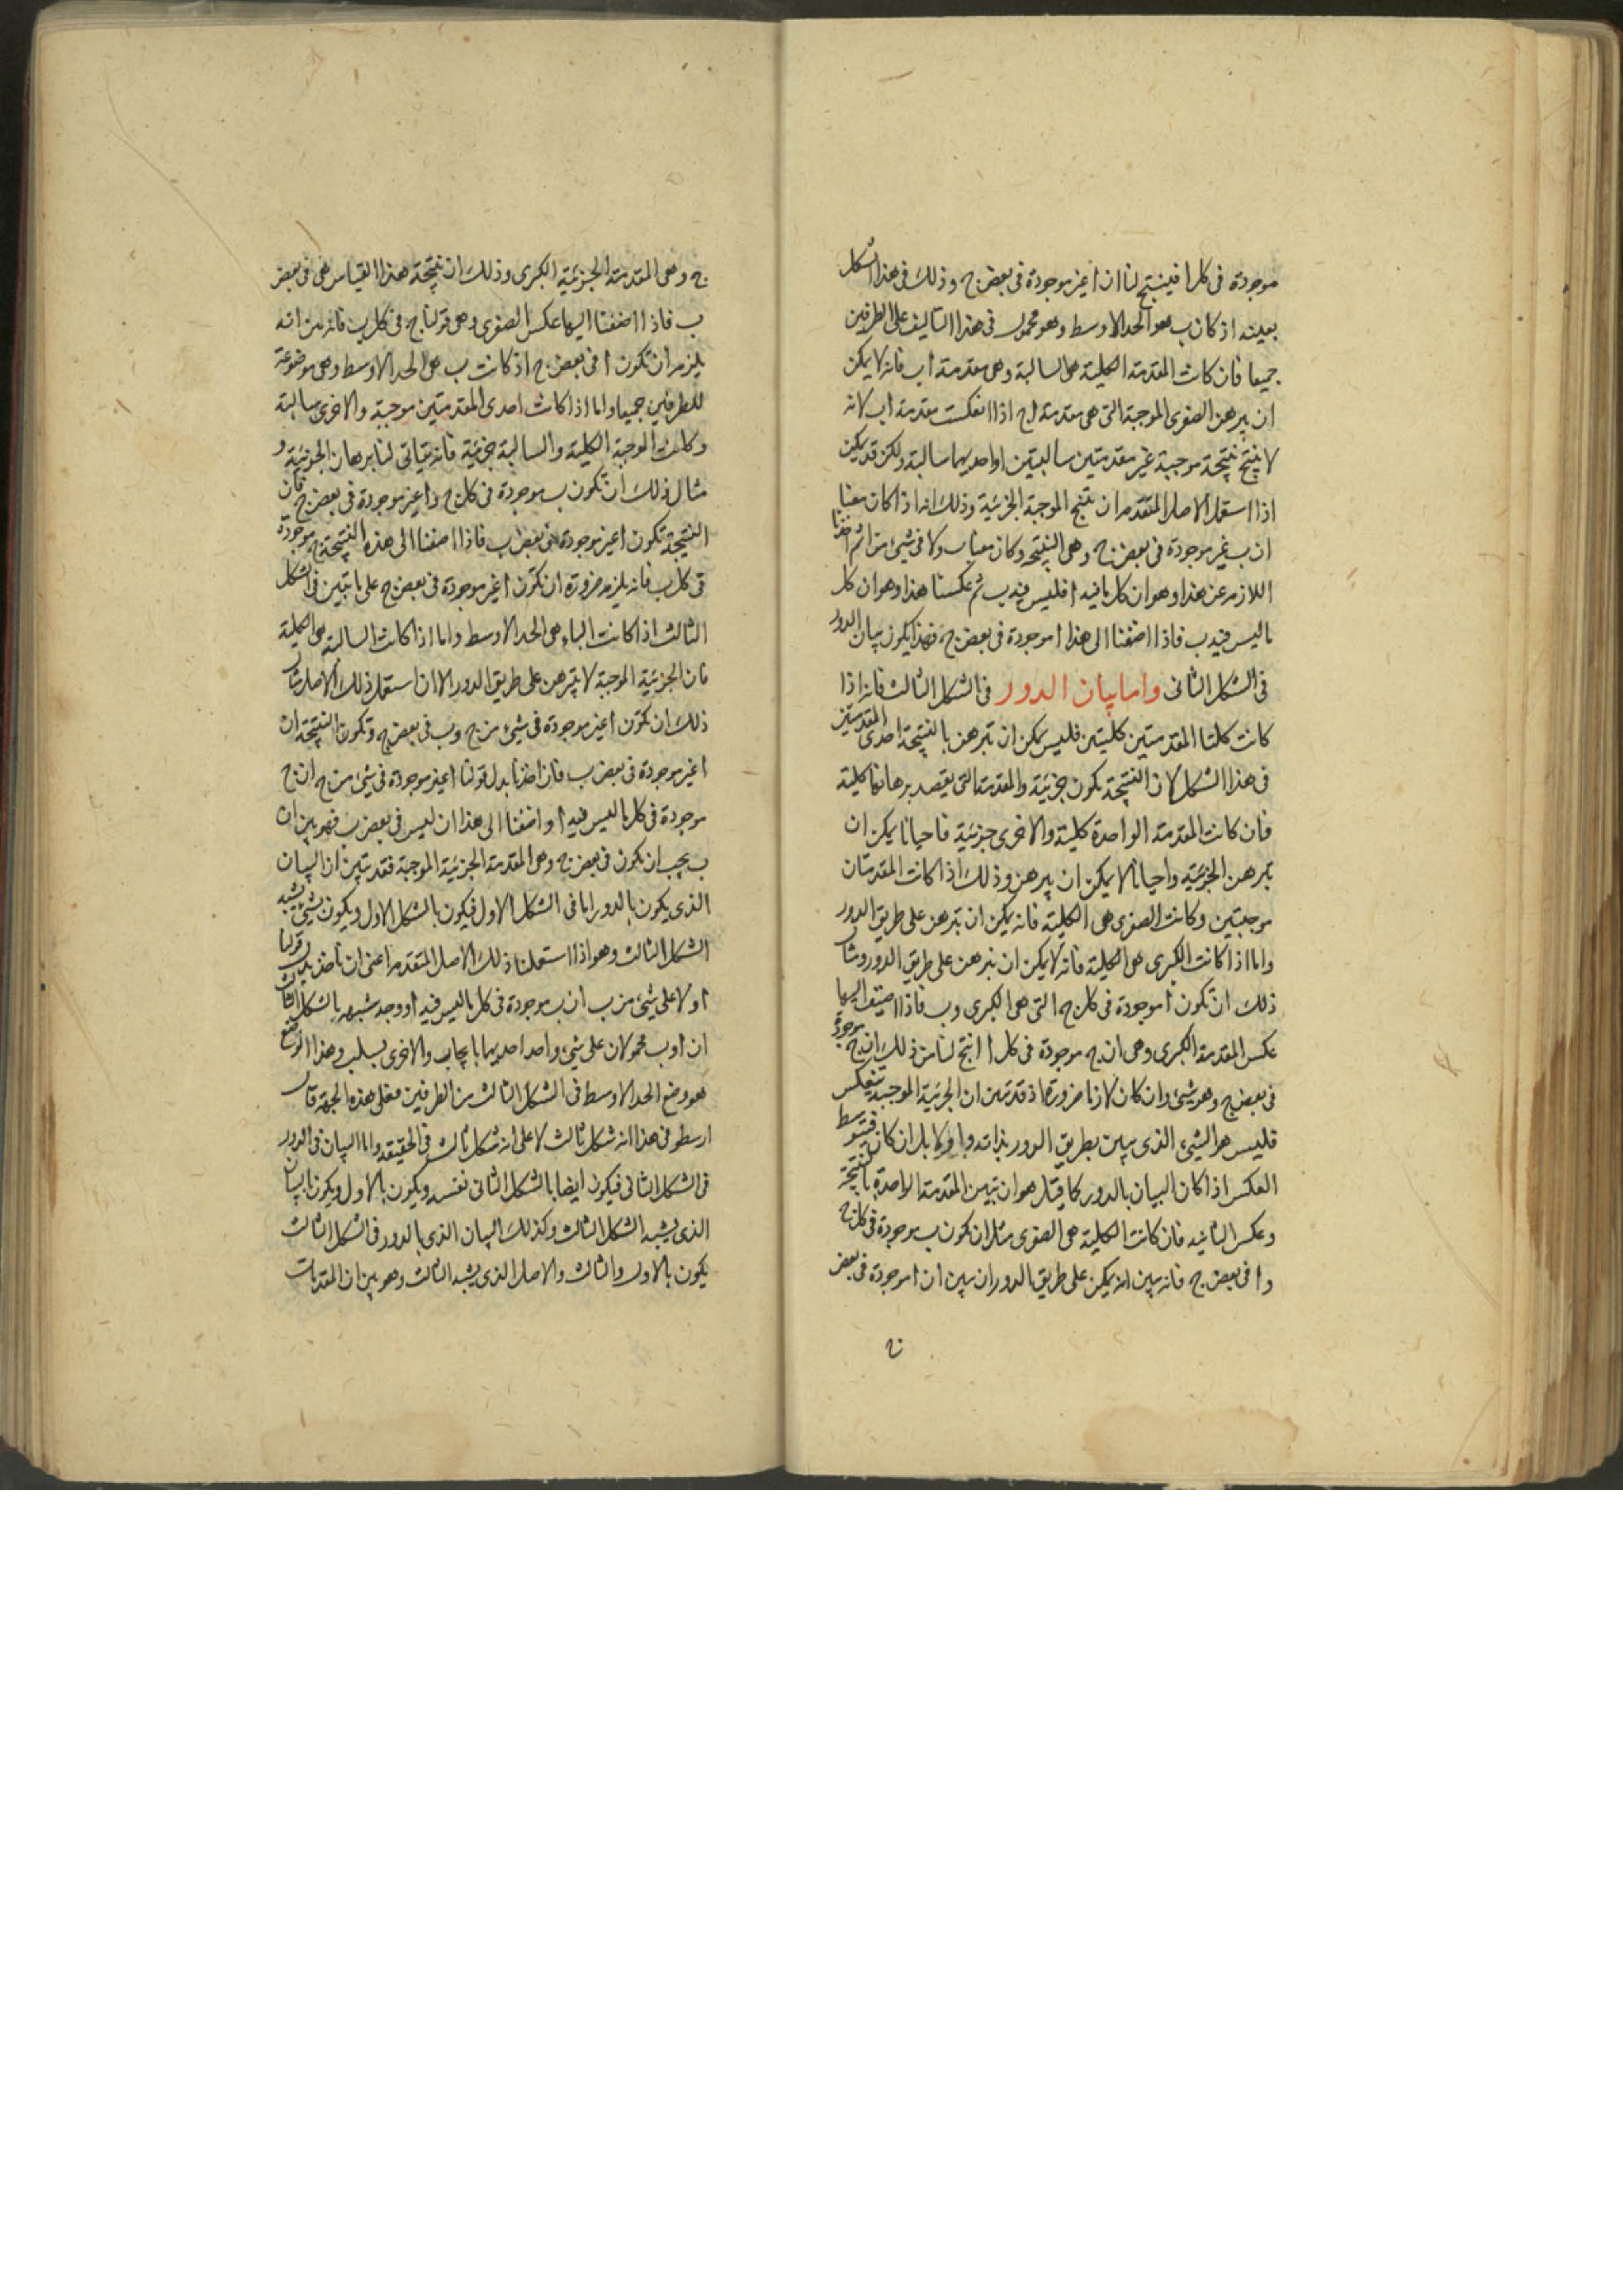 موجودة فى كل ا فينتج لنا ان ا غير موجودة فى بعض ج وذلك فى هذا الشكل
بعينه اذ كان ب هو الحد الاوسط وهو محمول فى هذا التاليف على الطرفين
جميعا فان كانت المقدمة الكلية هى السالبة وهى مقدمة اب فانه لا يمكن
ان يبرهن الصغرى الموجبة التى هى مقدمة اج اذا انعكست مقدمة اب لانه
لا ينتج نتيجة موجبة غير مقدمتين سالبتين او احديهما سالبة ولكن قد يمكن
اذا استعمل الاصل المتقدم ان ينتج الموجبة الجزئية وذلك انه اذ كان معنا
ان ب غير موجودة فى بعض ج وهى النتيجه وكان معنا ب ولا فى شىء من ا ثم اخذنا
اللازم عن هذا وهو ان كل ما فيه ا فليس فيه ب ثم عكسنا هذا وهو ان كل
ما ليس فيه ب فاذا اضفنا الى هذا ا موجودة فى بعض ج فهذا يكون بيان الدور
فى الشكل الثانى واما بيان الدور فى الشكل الثالث فانه اذا
كانت كلتا المقدمتين كليتين فليس يمكن ان تبرهن بالنتيجة احدى المقدمتين
فى هذا الشكل لان النتيجة تكون جزئية والمقدمة التى يقصد برهانها كلية
فان كانت المقدمة الواحدة كلية والاخرى جزئية فاحيانا يمكن ان
تبرهن الجزئية واحيانا لا يمكن ان يبرهن وذلك اذا كانت المقدمتان
موجبتين وكانت الصغرى هى الكلية فانه يمكن ان تبرهن على طريق الدور
واما اذا كانت الكبرى هى الكلية فانه لا يمكن ان تبرهن على طريق الدور ومثال
ذلك ان تكون ا موجودة فى كل ج التى هى الكبرى وب فاذا اضيف اليها
عكس المقدمة الكبرى وهى ان ج موجودة فى كل ا انتج لنا من ذلك ان ج موجودة
فى بعض ج وهو شىء وان كان لازما ضرورة اذ قد تبين ان الجزئية الموجبة تنعكس
فليس هو الشىء الذى يبين بطريق الدور بذاته واولا بل ان كان فبتوسط
العكس اذا كان البيان بالدور كما قيل هو ان تبين المقدمة الواحدة بالنتيجة
وعكس الثانيه فان كانت الكلية هى الصغرى مثل ان تكون ب موجودة فى كل ج
وا فى بعض ج فانه يبين انه يمكن على طريق الدور ان يبين ان ا موجودة فى بعض
ج وهى المقدمة الجزئية الكبرى وذلك ان نتيجة هذا القياس هى فى بعض
ب فاذا اضفنا اليها عكس الصغرى وهى قولنا ج فى كل ب فانه من انه
يلزم ان تكون ا فى بعض ج اذ كانت ب هى الحد الاوسط وهى موضوعة
للطرفين جميعا واما اذا كانت احدى المقدمتين موجبة والاخرى سالبة
وكانت الموجبة الكلية والسالبة جزئية فانه يتاتى لنا برهان الجزئية و
مثال ذلك ان تكون ب موجودة فى كل ج وا غير موجودة فى بعض ج فان
النتيجة تكون ا غير موجودة فى بعض ب فاذا اضفنا الى هذه النتيجة ج موجودة
فى كل ب فانه يلزم ضرورة ان تكون ا غير موجودة فى بعض ج على ما تبين فى الشكل
الثالث اذا كانت الباء هى الحد الاوسط واما اذا كانت السالبة هى الكلية
فان الجزئية الموجبة لا تبرهن على طريق الدور الا ان استعمل ذلك الاصل مثال
ذلك ان تكون ا غير موجودة فى شىء من ج وب فى بعض ج وتكون النتيجة ان
ا غير موجودة فى بعض ب فان اخذنا بدل قولنا ا غير موجودة فى شىء من ج ان ج
موجودة فى كل ما ليس فيه ا واضفنا الى هذا ان ليس فى بعض ب فهو بين ان
ب يجب ان تكون فى بعض ج وهى المقدمة الجزئية الموجبة فقد تبين ان البيان
الذى يكون بالدور اما فى الشكل الاول فيكون بالشكل الاول ويكون بشىء يشبه
الشكل الثالث وهو اذا استعملنا ذلك الاصل المتقدم اعنى ان ناخذ بدل قولنا
ا ولا على شىء من ب ان ب موجودة فى كل ما ليس فيه ا ووجه شبهه بالشكل الثالث
ان ا وب محمولان على شىء واحد احديهما بايجاب والاخرى بسلب وهذا الوضع
هو وضع الحد الاوسط فى الشكل الثالث من الطرفين فعلى هذه الجهة قال
ارسطو فى هذا انه شكل ثالث لا على انه شكل ثالث فى الحقيقه واما البيان فى الدور
فى الشكل الثانى فيكون ايضا بالشكل الثانى نفسه ويكون بالاول ويكون بالبيان
الذى يشبه الشكل الثالث وكذلك البيان الذى بالدور فى الشكل الثالث
يكون بالاول والثالث والاصل الذى يشبه الثالث وهو بين ان المقدمات